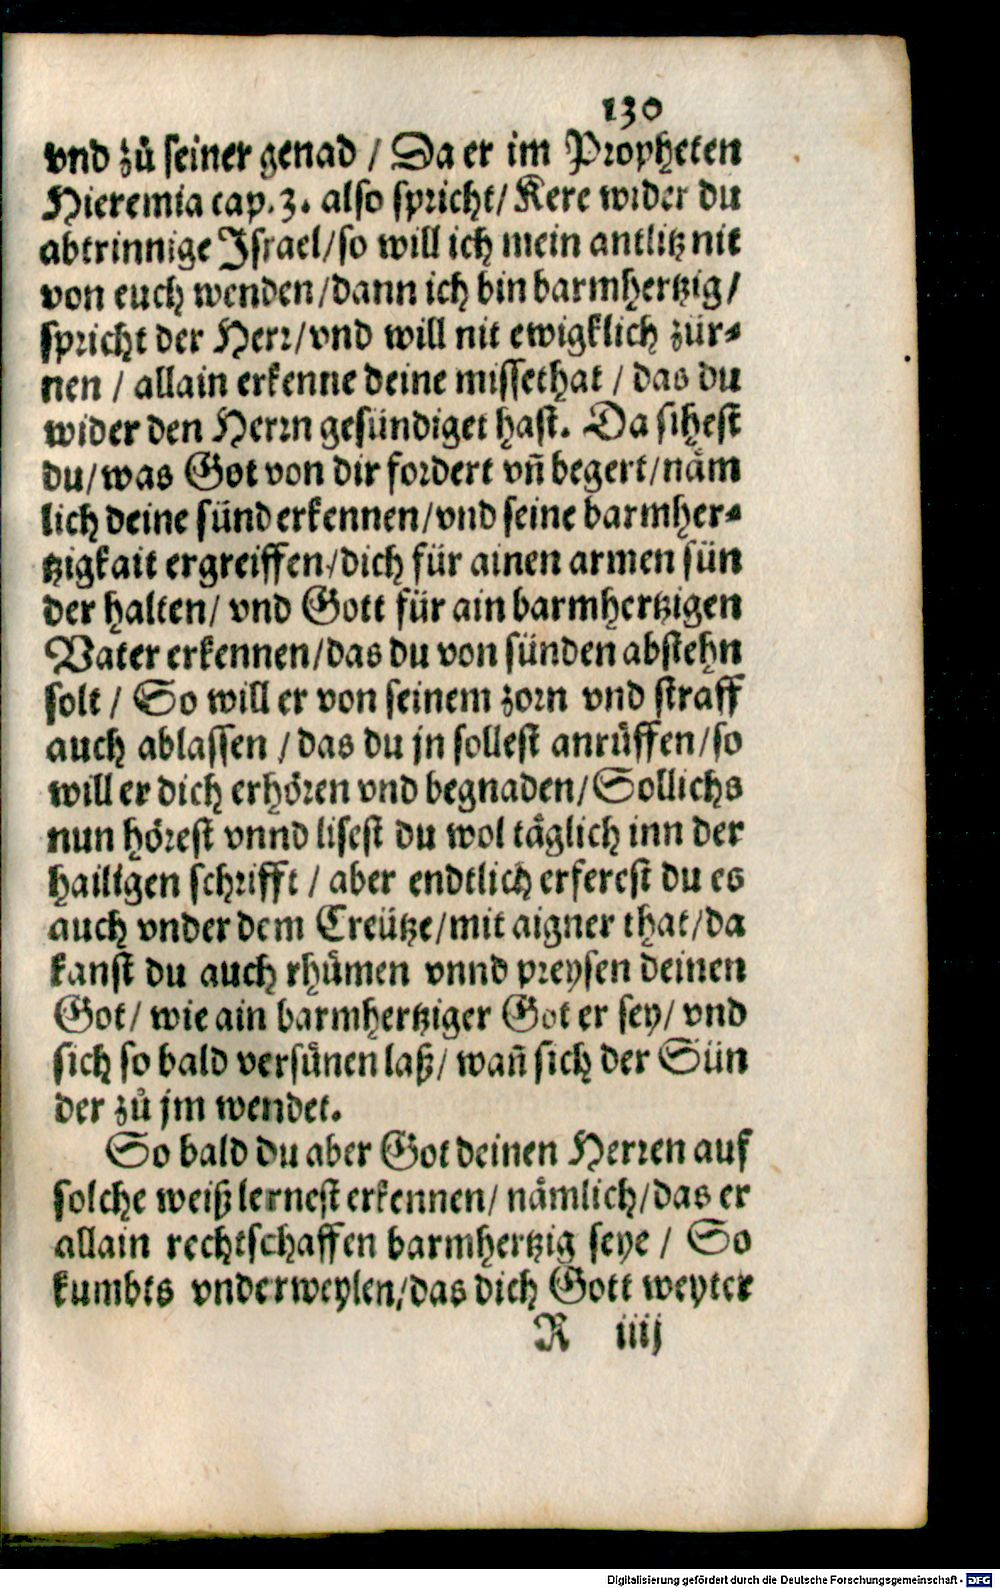 130
vnd zů seiner genad / Da er im Propheten
Hieremia cap. 3. also spricht/ Kere wider du
abtrinnige Israel/so will ich mein antlitz nit
von euch wenden/dann ich bin barmhertzig/
spricht der Herr/vnd will nit ewigklich zür⸗
nen / allain erkenne deine missethat / das du
wider den Herrn gesündiget hast. Da sihest
du/was Got von dir fordert vñ begert/näm
lich deine sünd erkennen/vnd seine barmher⸗
tzigkait ergreiffen/dich für ainen armen sün
der halten/ vnd Gott für ain barmhertzigen
Vater erkennen/das du von sünden abstehn
solt / So will er von seinem zorn vnd straff
auch ablassen / das du jn sollest anrůffen/so
will er dich erhören vnd begnaden/Sollichs
nun hörest vnnd lisest du wol täglich inn der
hailigen schrifft / aber endtlich erferest du es
auch vnder dem Creütze/mit aigner that/da
kanst du auch rhümen vnnd preysen deinen
Got/ wie ain barmhertziger Got er sey/ vnd
sich so bald versünen laß/ wañ sich der Sün
der zů jm wendet.
So bald du aber Got deinen Herren auf
solche weiß lernest erkennen/ nämlich/das er
allain rechtschaffen barmhertzig seye / So
kumbts vnderweylen/das dich Gott weyter
R iiij
Digitalisierung gefördert durch die Deutsche Forschungsgemeinschaft - DFG